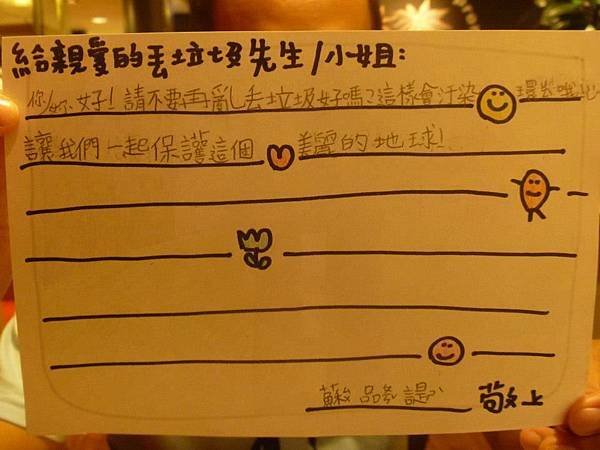 給親愛的丟垃圾先生/小姐:
你/妳好!請不要再亂丟垃圾好嗎?這樣會汙染環境哦!
讓我們一起保護這個美麗的地球!
蘇 敬上